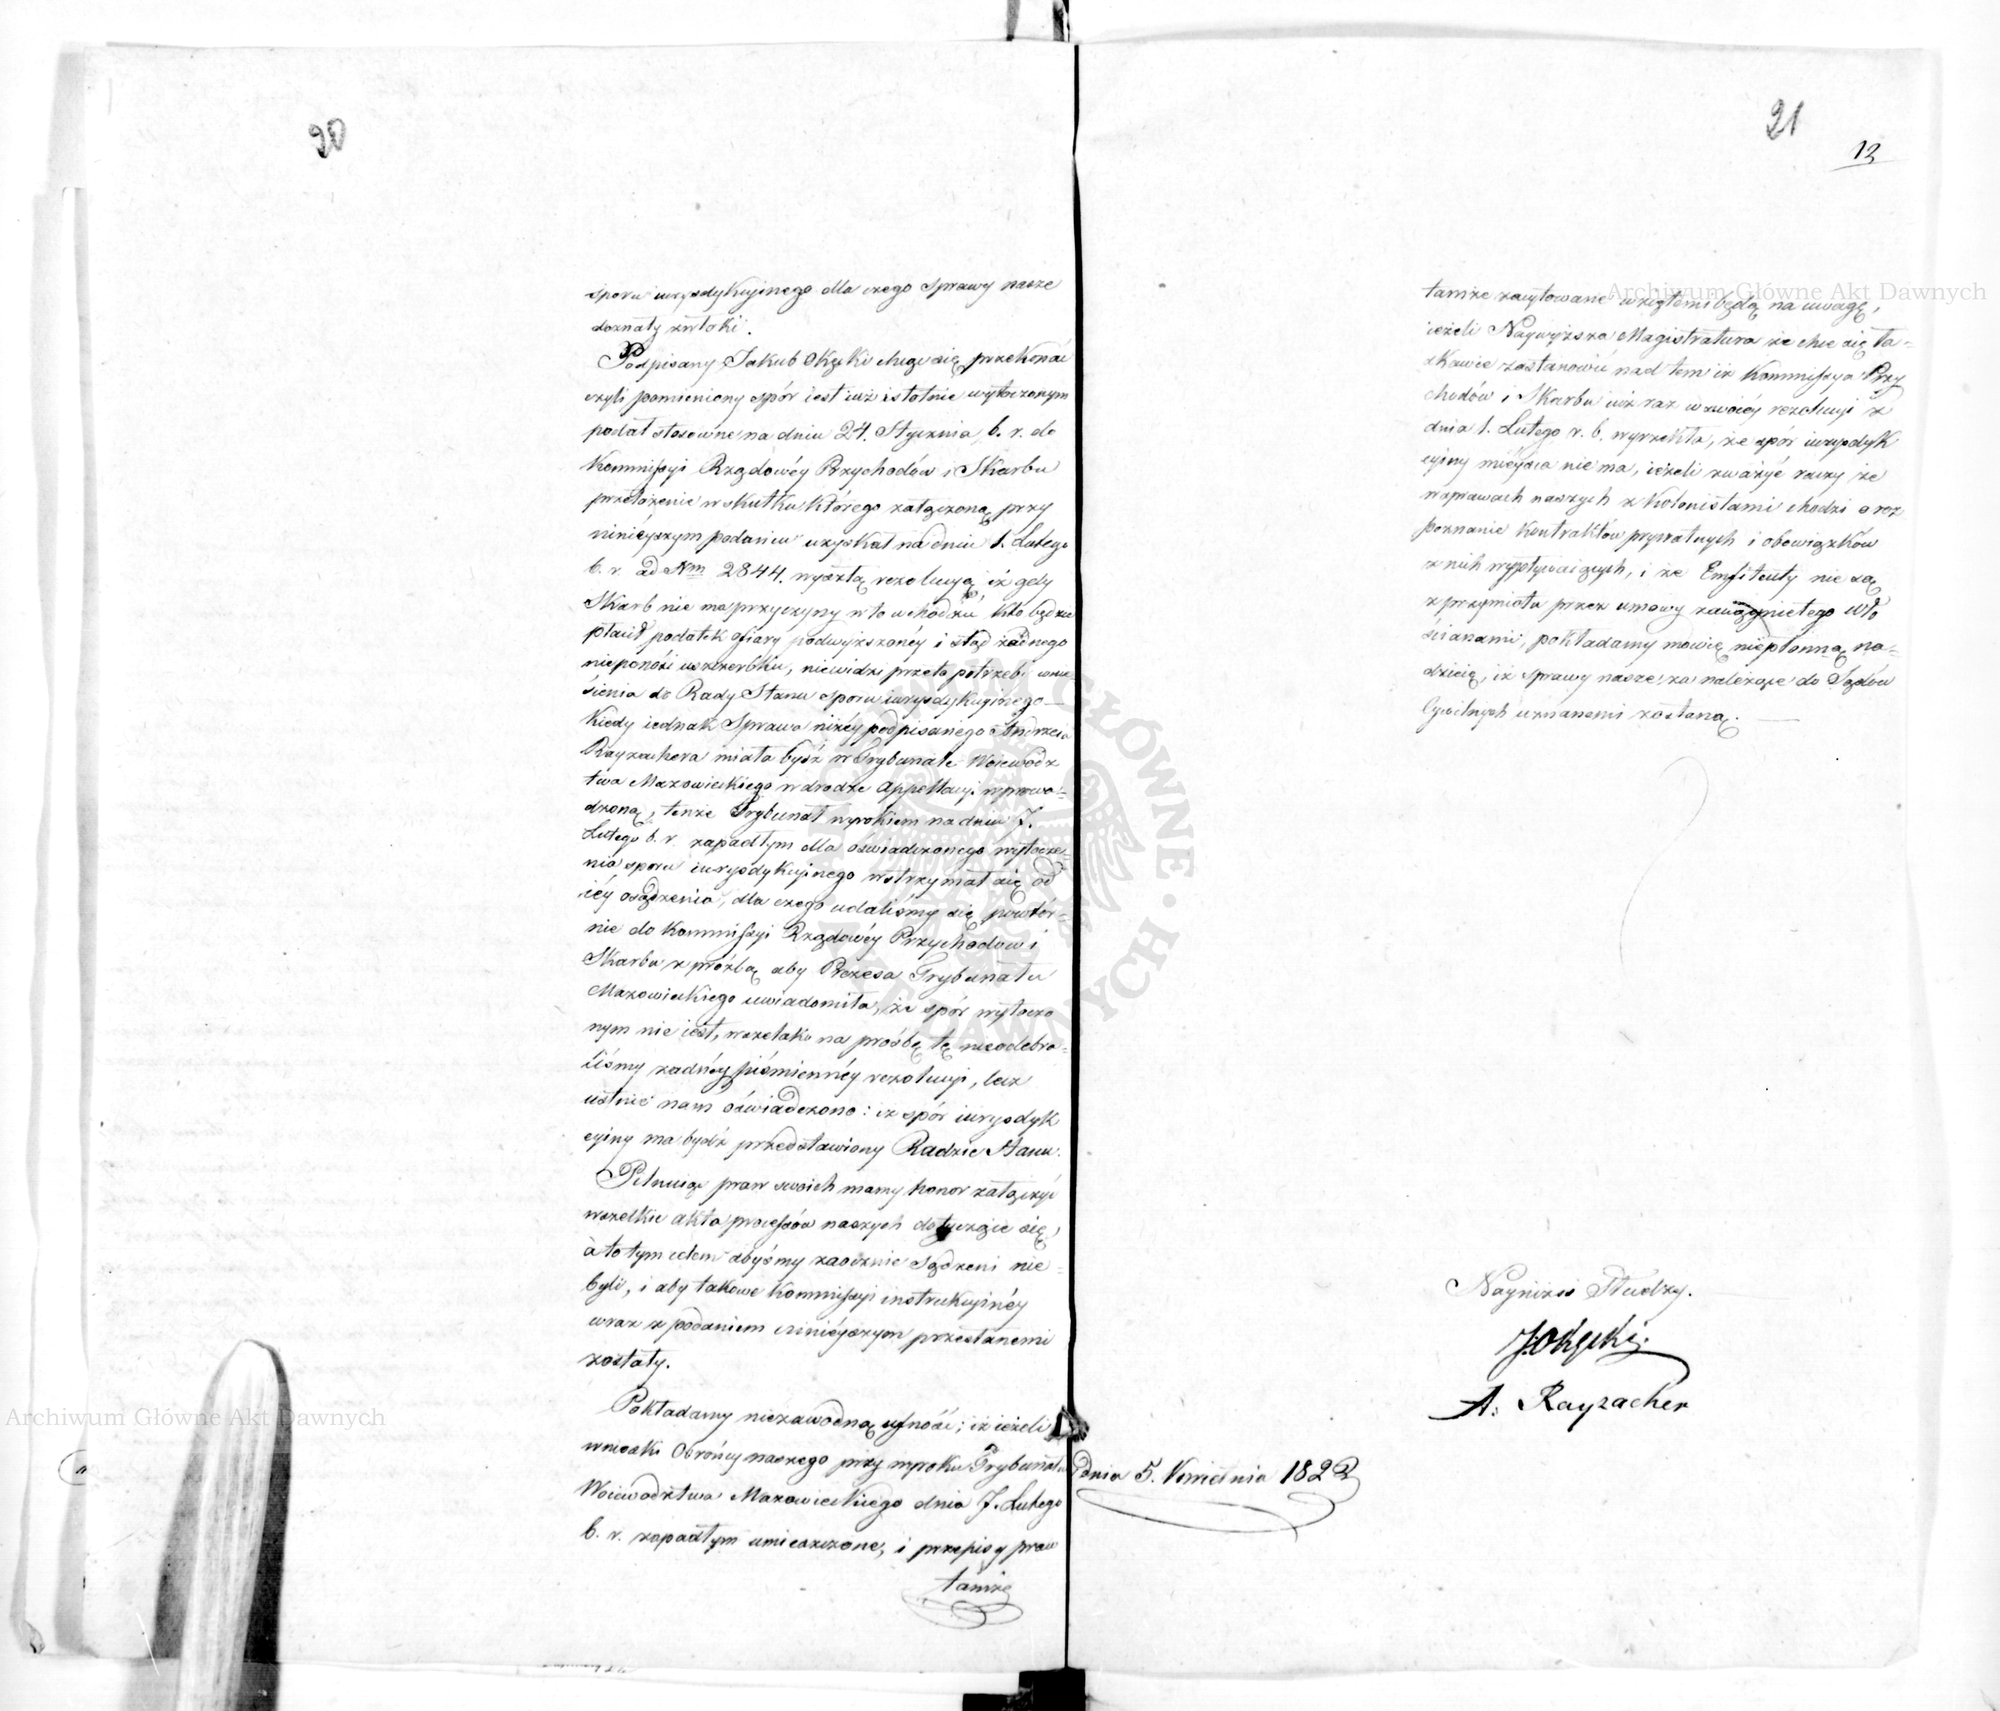 20
sporu jurysdykcyinego dla czego sprawy nasze
doznały zwłoki.
Podpisany Jakub Okęcki chcąc się przekonać
czyli pomieniony spór iest iuż istotnie wytoczonym
podał stosowne na dniu 24. Stycznia b. r. do
Kommissyi Rządowéy Przychodów i Skarbu
przełożenie w skutku którego załączoną przy
ninieyszym podaniu uzyskał na dniu 1. Lutego
b. r. ad Nm 2844. wyszłą rezolucyą iż gdy
Skarb nie ma przyczyny w to wchodzić kto będzie
płacił podatek ofiary podwyższoney i stąd żadnego
nieponosi uszczerbku, niewidzi przeto potrzeby wnie-
sienia do Rady Stanu sporu iurysdykcyinego —
Kiedy iednak Sprawa niżéy podpisanego Andrzeia
Rayzachera miała bydź w Trybunale Wojewódz
twa Mazowieckiego w drodze appellacyi wprowa-
dzoną, tenże Trybunał wyrokiem na dniu 7.
Lutego b. r. zapadłym dla oświadczonego wytocze-
nia sporu iurysdykcyinego wstrzymał się od
iéy osądzenia, dla czego udaliśmy się powtór-
nie do Kommissyi Rządowéy Przychodów i
Skarbu z prośbą aby Prezesa Trybunału
Mazowieckiego uwiadomiła, że spór wytoczo
nym nie iest, wszelako na prośbę tę nieodebra-
liśmy żadnéy piśmiennéy rezolucyi, lecz
ustnie nam oświadczono: iż spór iurysdyk
cyiny ma bydź przedstawiony Radzie Stanu.
Pilnuiąc praw swoich mamy honor załączyć
wszelkie akta processów naszych dotyczące się,
a to tym celem abyśmy zaocznie sądzeni nie-
byli, i aby takowe Kommissyi instrukcyinéy
wraz z podaniem ninieyszym przesłanemi
zostały.
Pokładamy niezawodną ufność; iż ieżeli
wnioski Obrońcy naszego przy wyroku Trybunału
Woiewództwa Mazowieckiego dnia 7. Lutego
b. r. zapadłym umieszczone, i przepisy praw
tamże
21
12
tamże zacytowane wziętemi będą na uwagę,
ieżeli Naywyższa Magistratura zechce się ła-
skawie zastanowić nad tem iż Kommissya Przy
chodów i Skarbu iuż raz w swoiéy rezolucyi z
dnia 1. Lutego r. b. wyrzekła, że spór iurysdyk
cyiny mieysca nie ma, ieżeli zważyć raczy że
w sprawach naszych z Kolonistami chodzi o roz
poznanie kontraktów prywatnych i obowiązków
z nich wypływaiących, i że Emfiteuty nie są
z przymiotu przez umowy zaciągniętego wło
ścianami, pokładamy mówię niepłonną na-
dzieię, iż sprawy nasze za należące do Sądów
Cywilnych uznanemi zostaną. —
Nayniżsi Słudzy.
J. Okęcki.
A. Rayzacher
dnia 5. Kwietnia 1822
Archiwum Główne Akt Dawnych
Archiwum Główne Akt Dawnych